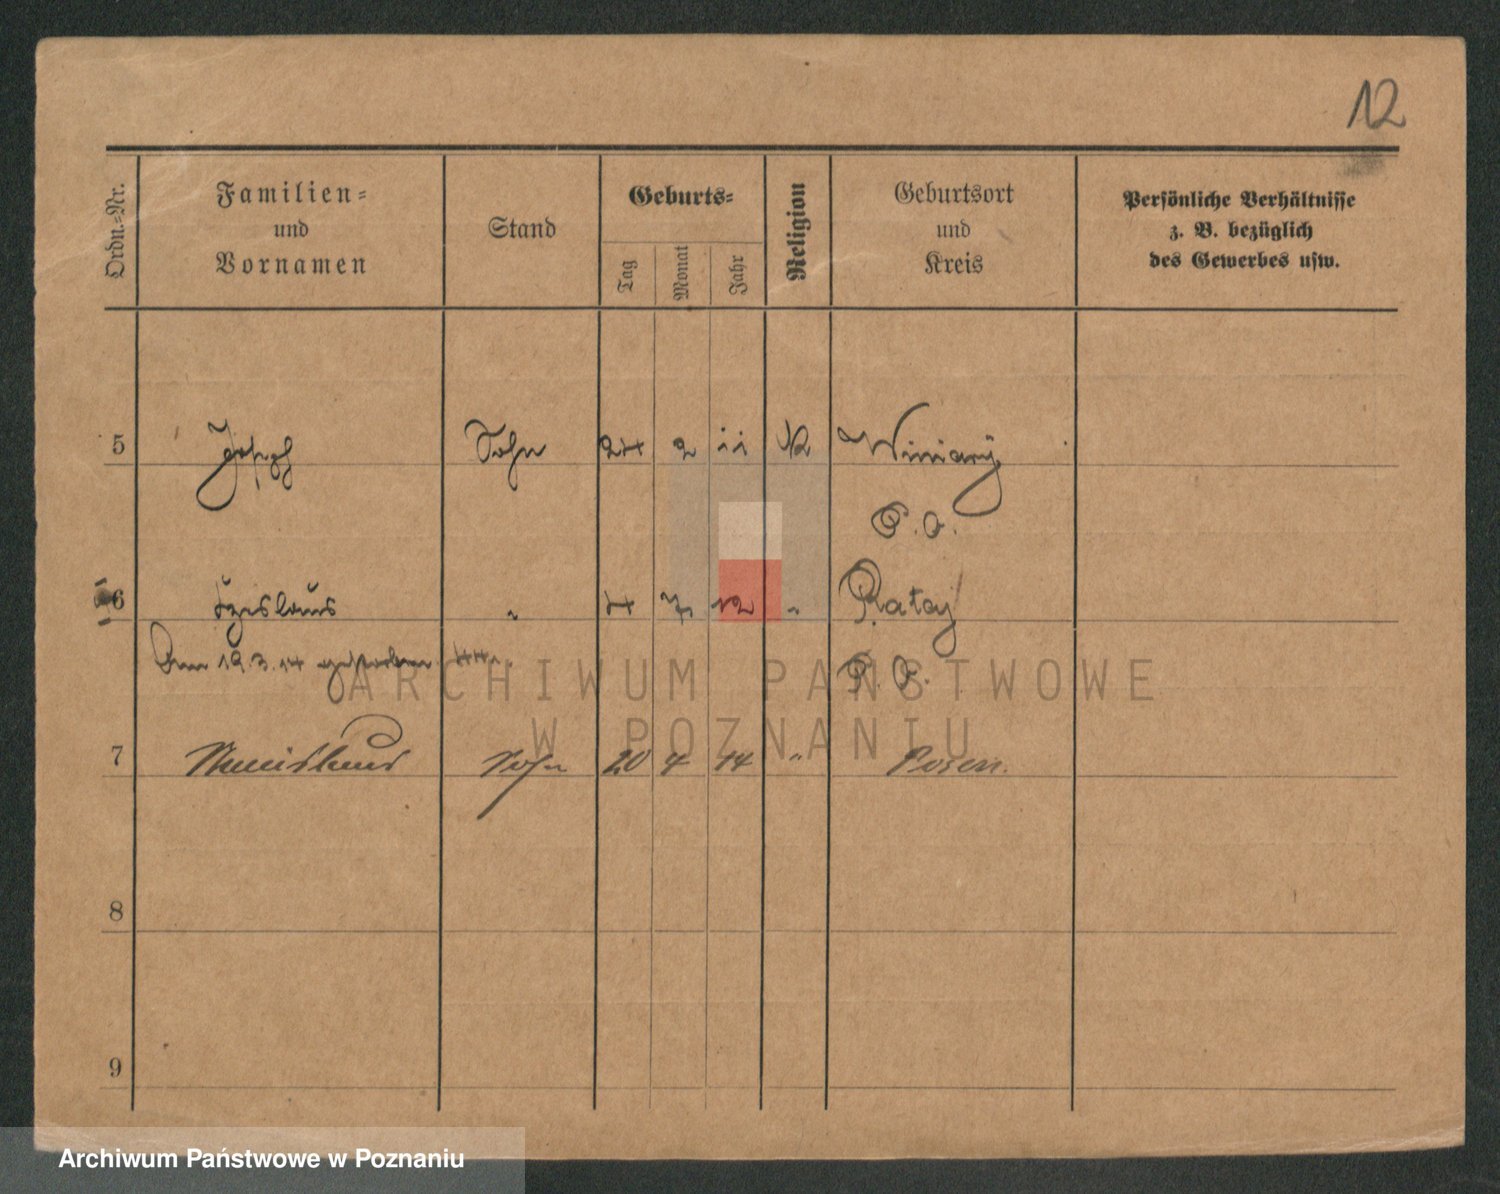 12
Ordn.=Nr.
Familien=
und
Vornamen
Stand
Geburts=
Tag
Monat
Jahr
Religion
Geburtsort
und
Kreis
Persönliche Verhältnisse
z. B. bezüglich
des Gewerbes usw.
5 Joseph Sohn 24 2 11 K Winiary
P. O.
6 Czeslaus " 4 7 12 " Rataj
Am 19.3.14 gestorben P. O.
ARCHIWUM PAŃSTWOWE
W POZNANIU
7 Sohn 20 4 14 " Posen.
8
9
Archiwum Państwowe w Poznaniu